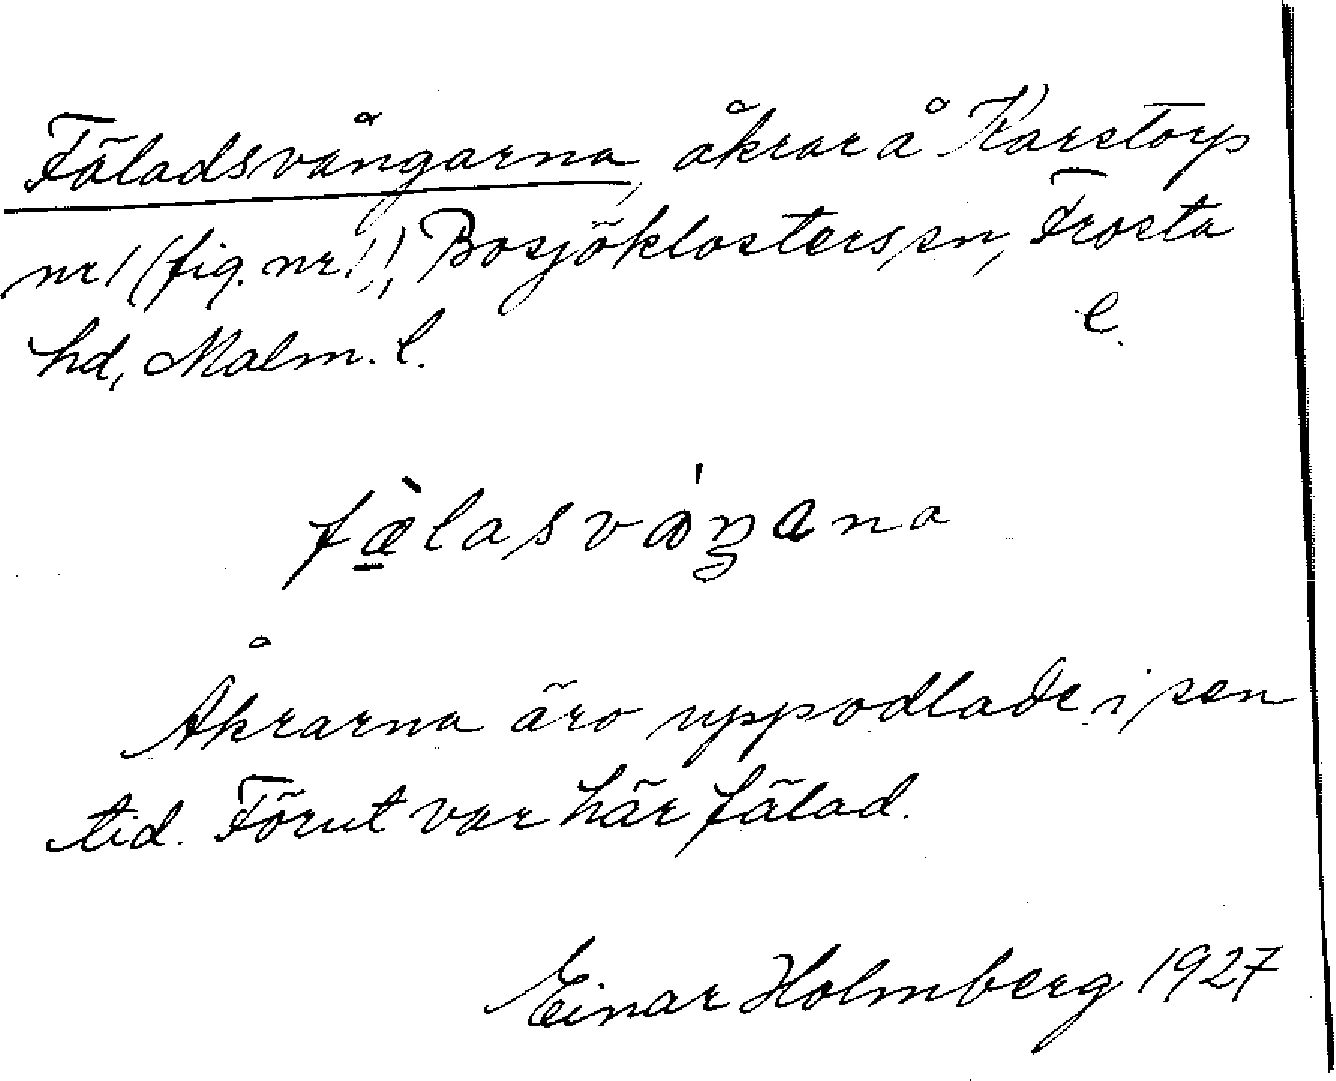 Fäladsvångarna, åkrar å Karstorp
nr 1 (fig. nr 1), Bosjöklosters sn, Frosta
hd, Malm. l. e.
fæ̀lasvåŋana
Åkrarna äro uppodlade i sen
tid. Förut var här fälad.
Einar Holmberg 1927